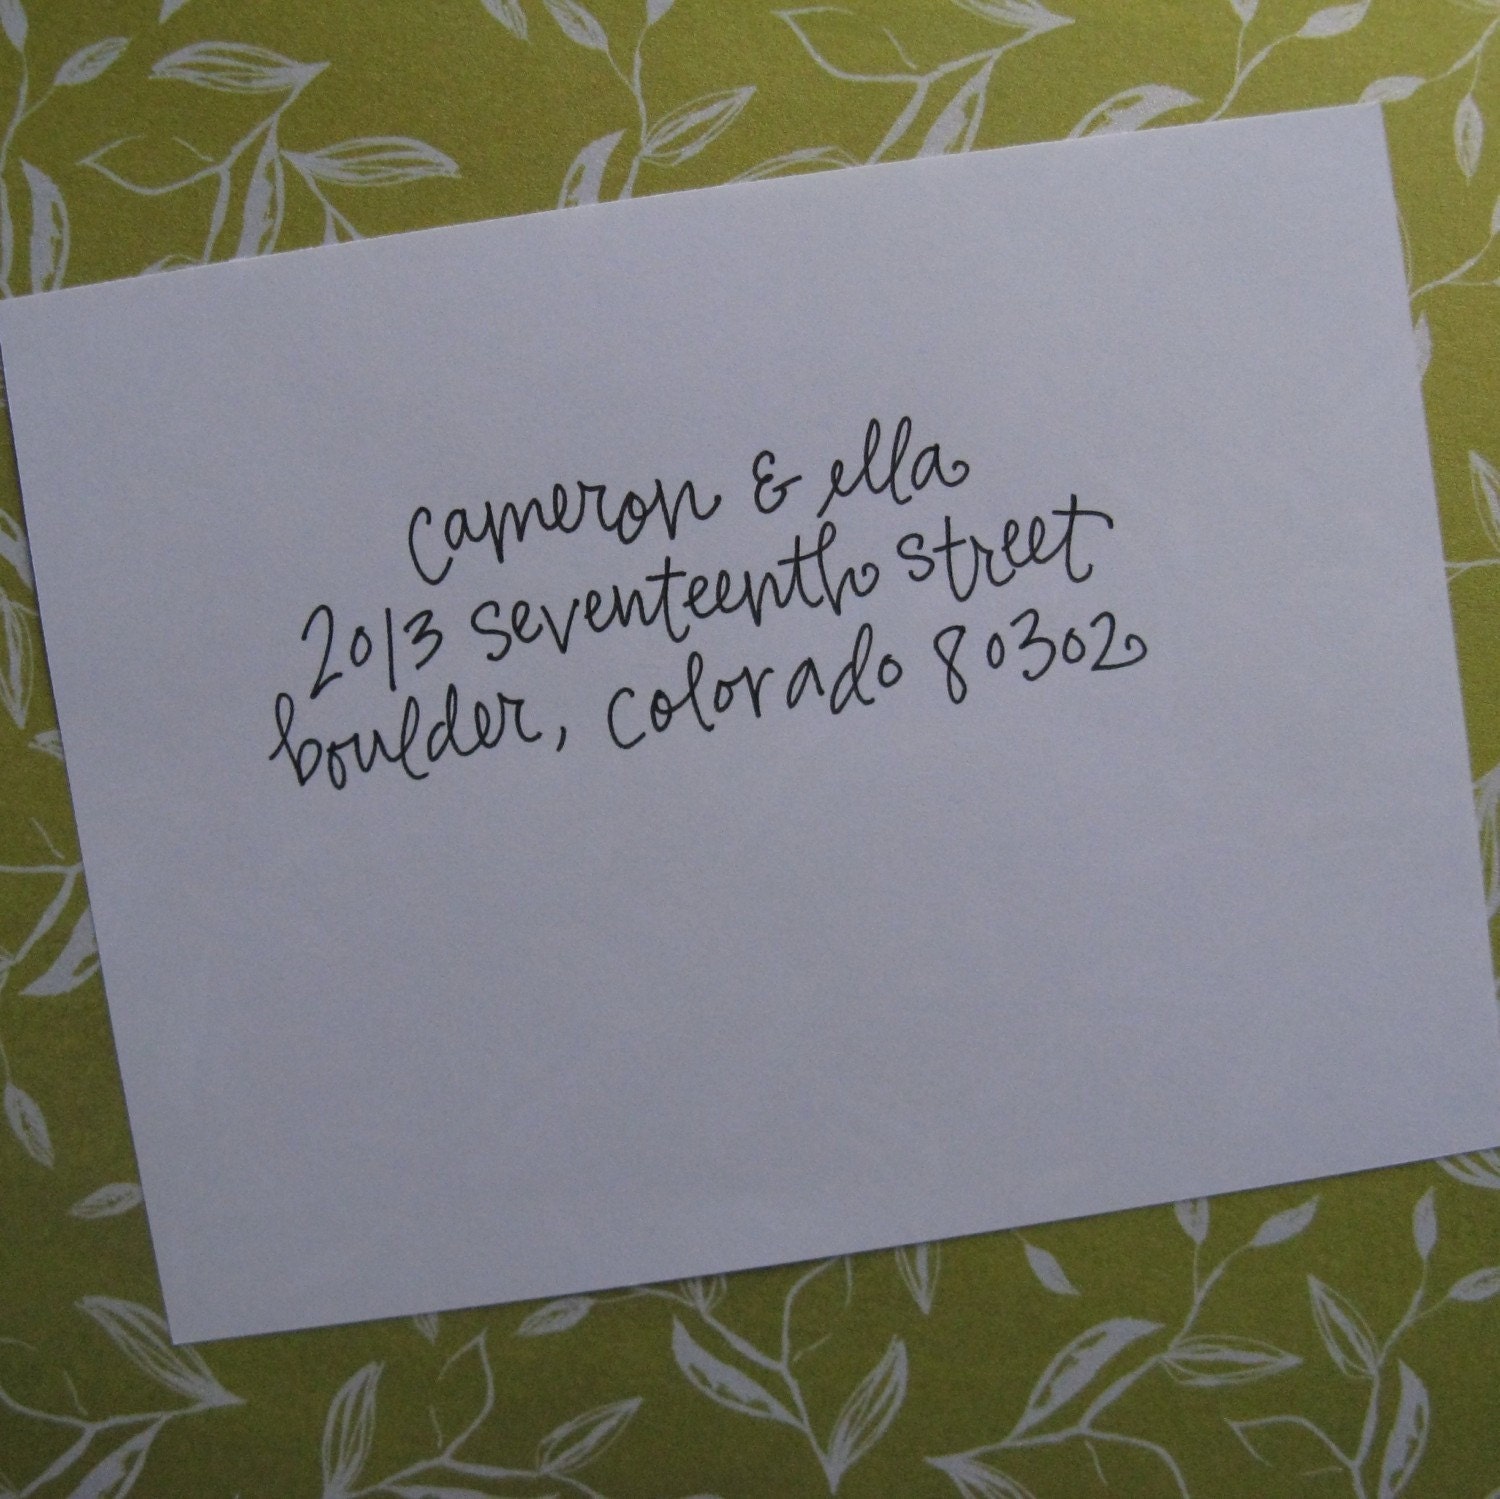 cameron & ella
2013 seventeenth street
boulder, colorado 80302